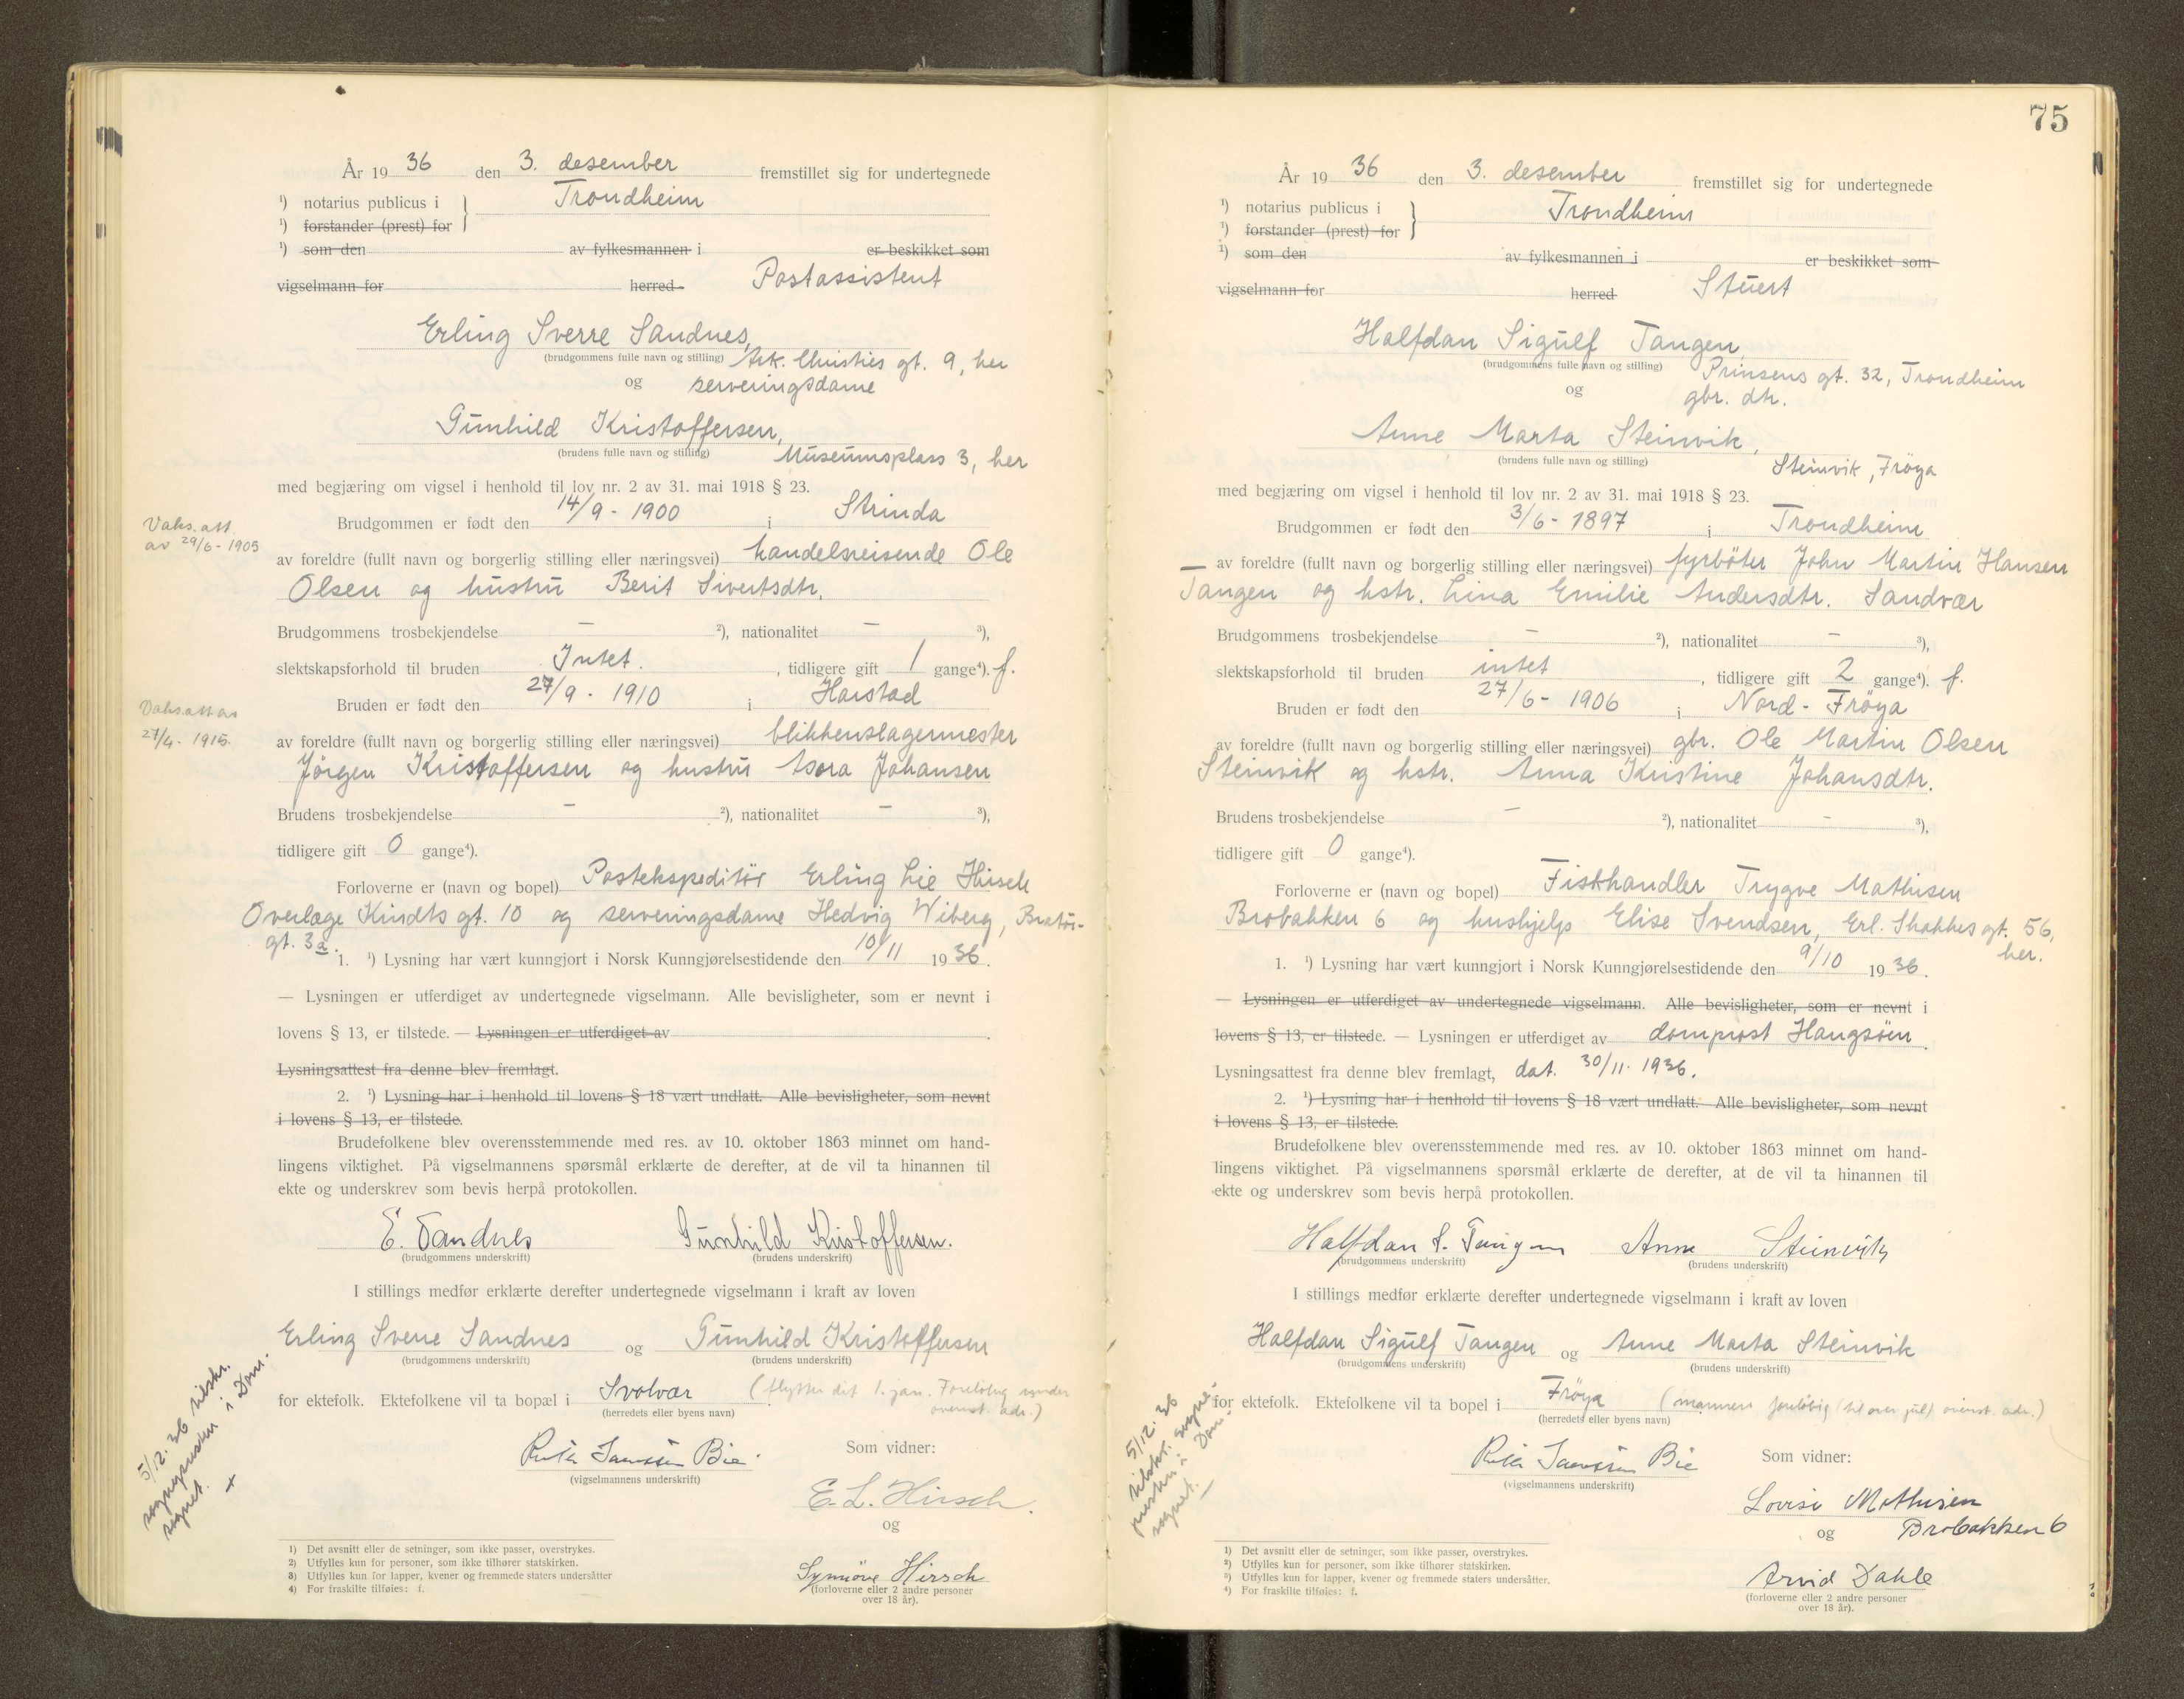 År 19 36 den 3. desember fremstillet sig for undertegnede
¹) notarius publicus i Trondheim
¹) forstander (prest) for
¹) som den av fylkesmannen i er beskikket som
vigselmann for herred Postassistent
Erling Sverre Sandnes,
(brudgommens fulle navn og stilling) Ark. Christies gt. 9, her
og serveringsdame
Gunhild Kristoffersen,
(brudens fulle navn og stilling) Museumsplass 3, her
med begjæring om vigsel i henhold til lov nr. 2 av 31. mai 1918 § 23.
Vaks.att.
av 29/6-1905
Brudgommen er født den 14/9 - 1900 i Strinda
av foreldre (fullt navn og borgerlig stilling eller næringsvei) handelsreisende Ole
Olsen og hustru Berit Sivertsdtr.
Brudgommens trosbekjendelse - ²), nationalitet - ³),
slektskapsforhold til bruden Intet. , tidligere gift 1 gange⁴). f.
Vaks.att av
27/4. 1915.
Bruden er født den 27/9 . 1910 i Harstad
av foreldre (fullt navn og borgerlig stilling eller næringsvei) blikkenslagermester
Jörgen Kristoffersen og hustru Asora Johansen
Brudens trosbekjendelse - ²), nationalitet - ³),
tidligere gift 0 gange⁴).
Forloverne er (navn og bopel) Postekspeditör Erling Lie Hirsch
Overlæge Kindts gt. 10 og serveringsdame Hedvig Wiberg, Bratör-
gt. 3a.
1. ¹) Lysning har vært kunngjort i Norsk Kunngjørelsestidende den 10/11 19 36.
— Lysningen er utferdiget av undertegnede vigselmann. Alle bevisligheter, som er nevnt i
lovens § 13, er tilstede. — Lysningen er utferdiget av .
Lysningsattest fra denne blev fremlagt.
2. ¹) Lysning har i henhold til lovens § 18 vært undlatt. Alle bevisligheter, som nevnt
i lovens § 13, er tilstede.
Brudefolkene blev overensstemmende med res. av 10. oktober 1863 minnet om hand-
lingens viktighet. På vigselmannens spørsmål erklærte de derefter, at de vil ta hinannen til
ekte og underskrev som bevis herpå protokollen.
E. Sandnes Gunhild Kristoffersen.
(brudgommens underskrift) (brudens underskrift)
I stillings medfør erklærte derefter undertegnede vigselmann i kraft av loven
Erling Sverre Sandnes og Gunhild Kristoffersen
(brudgommens underskrift) (brudens underskrift)
for ektefolk. Ektefolkene vil ta bopæl i Svolvær (flytter dit 1. jan. Foreløbig under
(herredets eller byens navn) ovenst. adr.)
5/12. 36 tilskr.
sognepresten i Dom.
sognet. +
Bie Som vidner:
(vigselmannens underskrift)
E. L. Hirsch.
og
Synnöve Hirsch
(forloverne eller 2 andre personer
over 18 år).
1) Det avsnitt eller de setninger, som ikke passer, overstrykes.
2) Utfylles kun for personer, som ikke tilhører statskirken.
3) Utfylles kun for lapper, kvener og fremmede staters undersåtter
4) For fraskilte tilføies: f.
75
År 19 36 den 3. desember fremstillet sig for undertegnede
¹) notarius publicus i Trondheim
¹) forstander (prest) for
¹) som den av fylkesmannen i er beskikket som
vigselmann for herred Stuert
Halfdan Sigulf Tangen,
(brudgommens fulle navn og stilling) Prinsens gt. 32, Trondheim
og gbr. dtr.
Anne Marta Steinvik,
(brudens fulle navn og stilling) Steinvik, Fröya
med begjæring om vigsel i henhold til lov nr. 2 av 31. mai 1918 § 23.
Brudgommen er født den 3/6 - 1897 i Trondheim
av foreldre (fullt navn og borgerlig stilling eller næringsvei) fyrböter John Martin Hansen
Tangen og hstr. Lina Emilie Andersdtr. Sandvær
Brudgommens trosbekjendelse - ²), nationalitet - ³),
slektskapsforhold til bruden intet , tidligere gift 2 gange⁴). f.
Bruden er født den 27/6 - 1906 i Nord-Fröya
av foreldre (fullt navn og borgerlig stilling eller næringsvei) gbr. Ole Martin Olsen
Steinvik og hstr. Anna Kristine Johansdtr.
Brudens trosbekjendelse - ²), nationalitet - ³),
tidligere gift 0 gange⁴).
Forloverne er (navn og bopel) Fiskhandler Trygve Mathisen
Brobakken 6 og hushjelp Elise Svendsen, Erl. Skakkes gt. 56,
her.
1. ¹) Lysning har vært kunngjort i Norsk Kunngjørelsestidende den 9/10 19 36.
— Lysningen er utferdiget av undertegnede vigselmann. Alle bevisligheter, som er nevnt i
lovens § 13, er tilstede. — Lysningen er utferdiget av domprost Haugsöen.
Lysningsattest fra denne blev fremlagt, dat. 30/11. 1936.
2. ¹) Lysning har i henhold til lovens § 18 vært undlatt. Alle bevisligheter, som nevnt
i lovens § 13, er tilstede.
Brudefolkene blev overensstemmende med res. av 10. oktober 1863 minnet om hand-
lingens viktighet. På vigselmannens spørsmål erklærte de derefter, at de vil ta hinannen til
ekte og underskrev som bevis herpå protokollen.
Halfdan S. Tangen Anne Steinvik
(brudgommens underskrift) (brudens underskrift)
I stillings medfør erklærte derefter undertegnede vigselmann i kraft av loven
Halfdan Sigulf Tangen og Anne Marta Steinvik
(brudgommens underskrift) (brudens underskrift)
for ektefolk. Ektefolkene vil ta bopel i Fröya (mannen foreløbig (til over jul) ovenst. adr.)
(herredets eller byens navn)
5/12. 36
tilskr. sogne-
presten i Dom-
sognet. —
Bie Som vidner:
(vigselmannens underskrift)
Lovise Mathisen
og Brobakken 6
Arvid Dahle
(forloverne eller 2 andre personer
over 18 år).
1) Det avsnitt eller de setninger, som ikke passer, overstrykes.
2) Utfylles kun for personer, som ikke tilhører statskirken.
3) Utfylles kun for lapper, kvener og fremmede staters undersåtter.
4) For fraskilte tilføies: f.